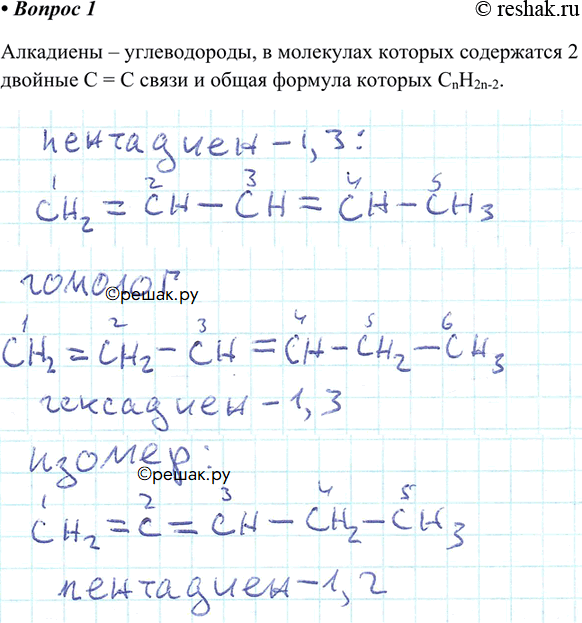 © reshak.ru
• Вопрос 1
Алкадиены – углеводороды, в молекулах которых содержатся 2
двойные C = C связи и общая формула которых CₙH₂ₙ₋₂.
пентадиен-1,3:
1 2 3 4 5
CH₂ = CH – CH = CH – CH₃
гомолог
©решак.ру
1 2 3 4 5 6
CH₂ = CH₂ – CH = CH – CH₂ – CH₃
гексадиен-1,3
изомер:
©решак.ру
1 2 3 4 5
CH₂ = C = CH – CH₂ – CH₃
пентадиен-1,2